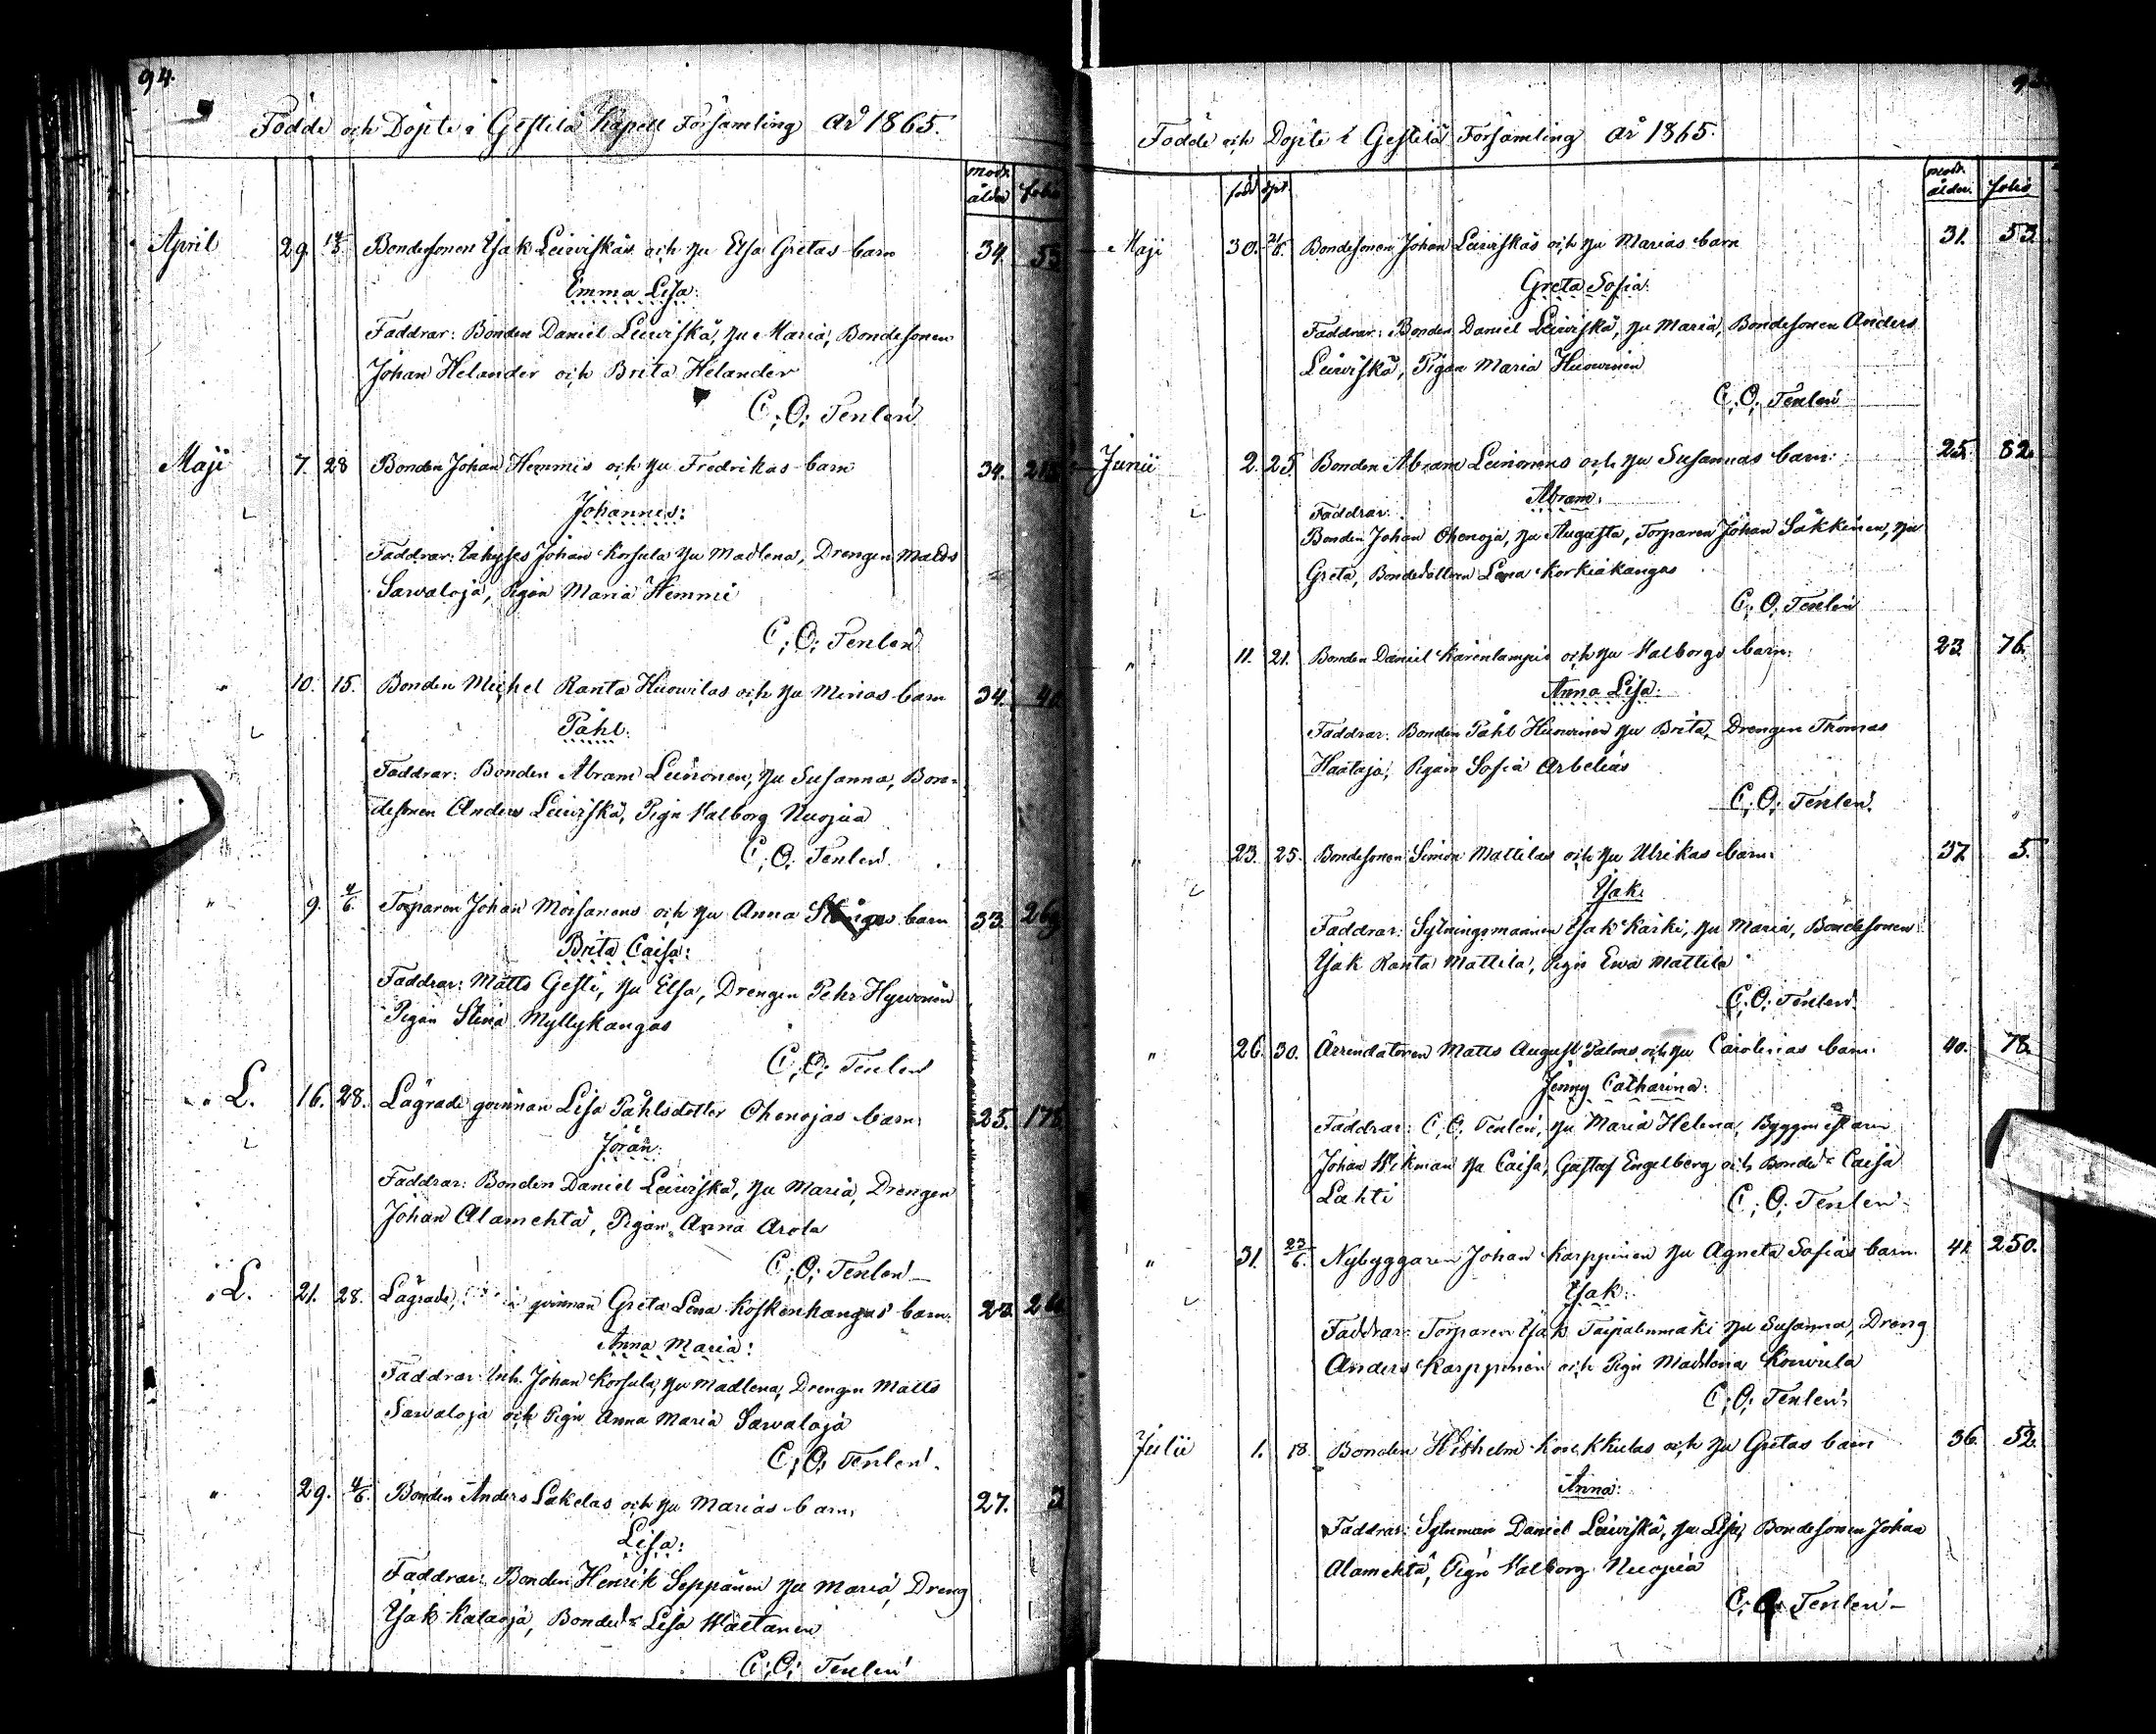 94.
Födde och Döpte i Gestilä Kapell Församling År 1865.
modr. ålder folio
April 29. 14/5. Bondesonen Isak Leiwiskäs och hu Elsa Gretas barn 34. 53
Emma Lisa:
Faddrar: Bonden Daniel Leiwiskä, hu Maria, Bondesonen
Johan Helander och Brita Helander
C; O; Tenlén
Maji 7. 28 Bonden Johan Hemmis och hu Fredrikas barn 34.
Johannes:
Faddrar: Inhyses Johan Korsula hu Madlena, Drengen Matts
Sarvaloja, Pigan Maria Hemmi
C; O; Tenlén
" 10. 15. Bonden Michel Ranta Huowilas och hu Minas barn 34.
Påhl:
Faddrar: Bonden Abram Leinonen, hu Susanna, Bon=
desonen Anders Leiwiskä, Pign Walborg Nuojua
C; O; Tenlén
" 9. 4/6. Torparen Johan Moisanens och hu Anna barn 33. 269
Brita Caisa:
Faddrar: Matts Gesti, hu Elsa, Drengen Pehr Hywönen
Pigan Stina Myllykangas
C; O; Tenlén
" L. 16. 28. Lägrade qvinnan Lisa Påhlsdotter Ohenojas barn 25. 178
Jöran:
Faddrar: Bonden Daniel Leiwiskä, hu Maria, Drengen
Johan Alamehtä, Pigan Anna Arola
C; O; Tenlén
" L. 21. 28. Lägrade, qvinnan Greta Lena Koskenkangas barn.
Anna Maria:
Faddrar: Inh. Johan Korsula, hu Madlena, Drengen Matts
Sarvaloja och Pign Anna Maria Sarvaloja
C; O; Tenlén
" 29. 4/6. Bonden Anders Lakelas och hu Marias barn, 27. 3
Lisa:
Faddrar: Bonden Henrik Seppänen hu Maria, Dreng
Isak Kalaoja, Bonded:r Lisa Wäetänen
C; O; Tenlén
Födde och Döpte i Gestilä Församling år 1865.
född döpt modr. ålder. folio
Maji 30. Bondesonen Johan Leiwiskäs och hu Marias barn 31. 53
Greta Sofia:
Faddrar: Bonden Daniel Leiwiskä, hu Maria, Bondesonen Anders
Leiwiskä, Pigan Maria Huowinen
C; O; Tenlén
Junii 2. 25. Bonden Abram Leinonens och hu Susannas barn: 25. 82.
Abram:
Faddrar:
Bonden Johan Ohenoja, hu Augusta, Torparen Johan Säkkinen, hu
Greta, Bondedottren Lena Korkiakangas
C; O; Tenlén
" 11. 21. Bonden Daniel Kärenlampis och hu Walborgs barn: 23. 76.
Anna Lisa:
Faddrar: Bonden Påhl Huowinen hu Brita, Drengen Thomas
Haataja, Pigan Sofia Arbelius
C; O; Tenlén.
" 23. 25. Bondesonen Simon Mattilas och hu Ulrikas barn: 37. 5.
Isak:
Faddrar: Sytningsmannen Isak Kärki, hu Maria, Bondesonen
Isak Ranta Mattila, Pign Ewa Mattila
C; O; Tenlén.
" 26. 30. Arrendatoren Matts August Palms och hu Carolinas barn: 40. 78.
Jenny Catharina:
Faddrar: C; O; Tenlén, hu Maria Helena, Byggmästaren
Johan Wikman hu Caisa, Gustaf Engelberg och Bonded:r Caisa
Lahti
C; O; Tenlén
" 31. 23/6. Nybyggaren Johan Karppinen hu Agneta Sofias barn. 41. 250.
Isak:
Faddrar: Torparen Isak Taipalenmäki hu Susanna, Dreng
Anders Karppinen och Pign Madlena Koiwula
C; O; Tenlén
Julii 1. 18. Bonden Wilhelm och hu Gretas barn 36. 52.
Anna:
Faddrar: Sytnman Daniel Leiwiskä, hu Lisa, Bondesonen Johan
Alamehtä, Pign Walborg Nuojua
C; O; Tenlén